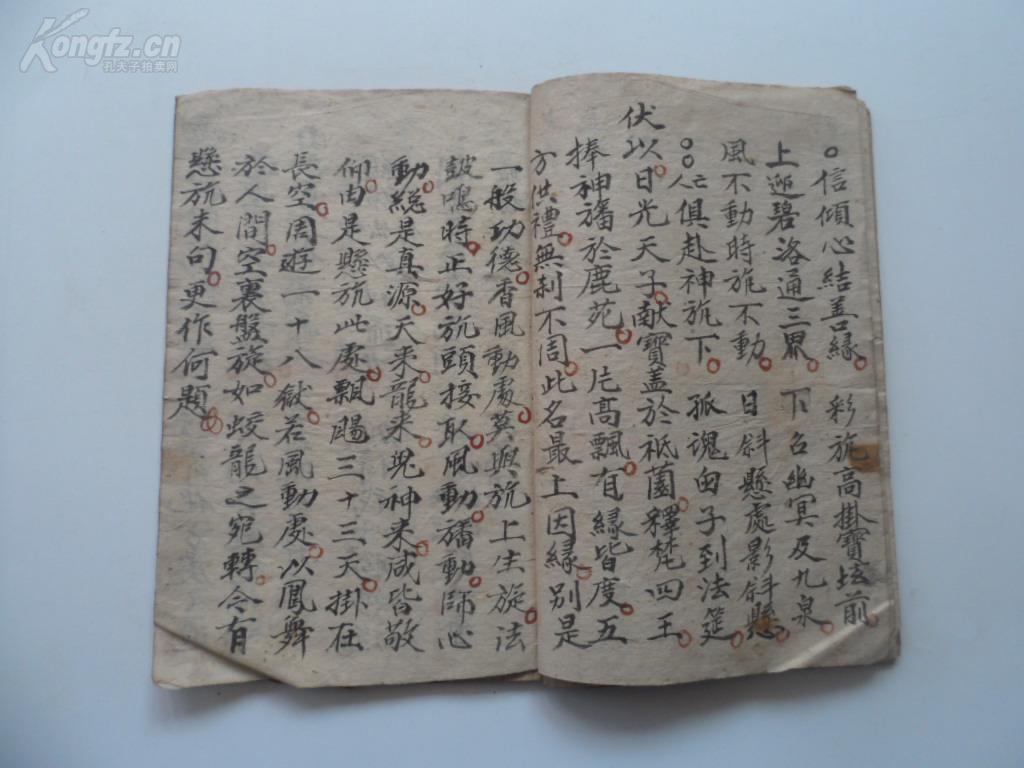 Kongfz.cn
孔夫子拍卖网
信傾心結善緣。彩旎高掛寶坛前。
上逥碧洛通三界。下召幽冥及九泉。
風不動時旎不動。日斜懸處影斜懸。
亡人俱赴神旎下。孤魂由子到法筵。
伏以日光天子献寶盖於祗園。釋梵四王
捧神旙於鹿苑。一片髙飄。有縁皆度。五
方供禮。無刹不周。此名最上因縁。别是
一般功德。香風動處莫與旎上生旋。法
皷鳴時。正好旎頭接取。風動。旙動。師心
動。総是真源。天来。龍来。鬼神来。咸皆敬
仰。由是懸旎此處。飄颺三十三天。掛在
長空。周遊一十八獄。若風動處。以鳳舞
於人間。空裏盤旋。如蛟龍之宛轉。今有
懸旎末句。更作何題。